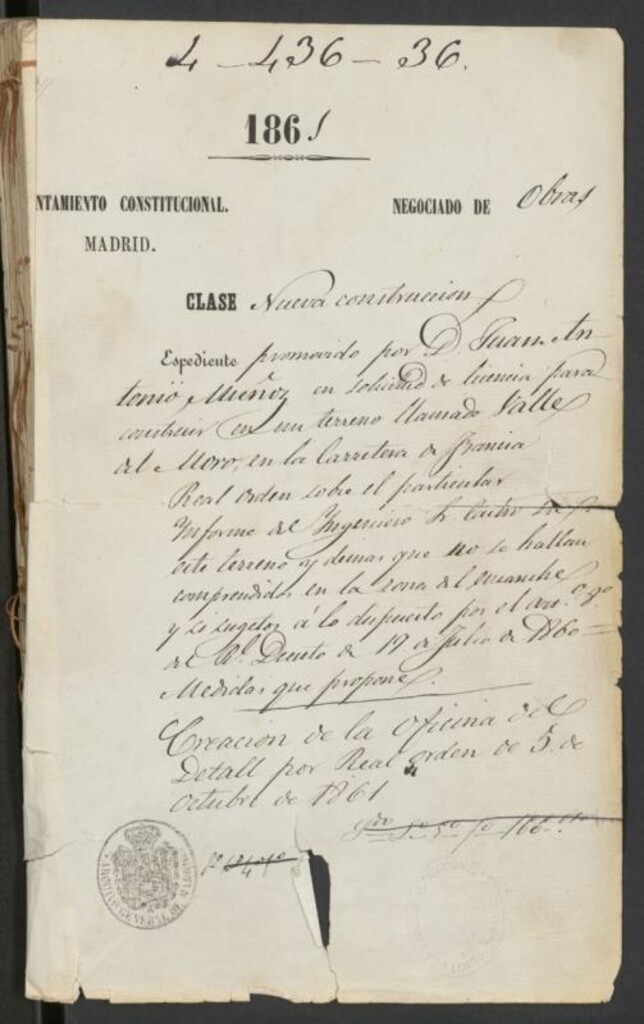 4 - 436 - 36.
1861
NTAMIENTO CONSTITUCIONAL.
NEGOCIADO DE Obras
MADRID.
CLASE Nueva construccion
Espediente promovido por D. Juan An
tonio Muñoz en solicitud de licencia para
construir en un terreno llamado Valle
del Moro, en la Carretera de Francia
Real orden sobre el particular
Informe del Ingeniero Sr. Castro
este terreno y demas que no se hallan
comprendidos en la zona del ensanche
y si sugetos á lo dispuesto por el art.º 9º
del Rl. Decreto de 19 de Julio de 1860 =
Medidas que propone.
Creacion de la oficina del
Detall por Real orden de 5 de
octubre de 1861
ARCHIVO GENERAL DE MADRID